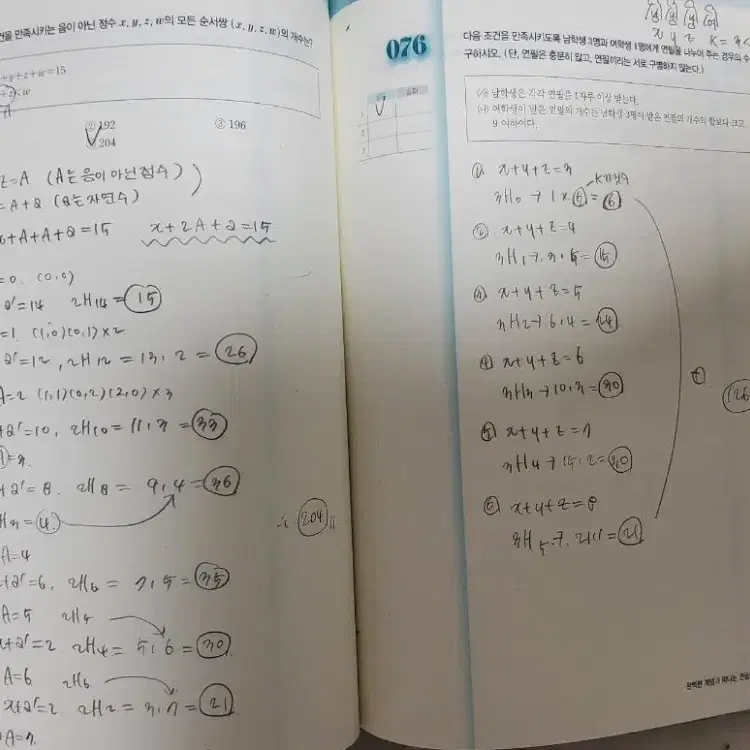 건을 만족시키는 음이 아닌 정수 x, y, z, w의 모든 순서쌍 (x, y, z, w)의 개수는?
+y+z+w=15
② 192
③ 196
204
z=A (A는 음이 아닌 정수)
=A+a (a는 자연수)
x+A+A+a=15 x+2A+a=15
=0. (0,0)
a'=14 2H14=15
=1 (1,0)(0,1)×2
a'=12, 2H12=13·2=26
A=2 (1,1)(0,2)(2,0)×3
+a'=10, 2H10=11·3=33
+a'=8. 2H8=9·4=36
H3=4
∴ 204
A=4
+a'=6, 2H6=7·5=35
A=5 2H5
x+a'=2 2H4=5·6=30
A=6 2H6
x+a'=2 2H2=3·7=21
A=7.
076
x y z
다음 조건을 만족시키도록 남학생 3명과 여학생 1명에게 연필을 나누어 주는 경우의 수
구하시오. (단, 연필은 충분히 많고, 연필끼리는 서로 구별하지 않는다.)
(가) 남학생은 각각 연필을 1자루 이상 받는다.
(나) 여학생이 받은 연필의 개수는 남학생 3명이 받은 연필의 개수의 합보다 크고
9 이하이다.
① x+y+z=3
3H0→1×6=6
② x+y+z=4
3H1→3·5=15
③ x+y+z=5
3H2→6·4=24
④ x+y+z=6
3H3→10·3=30
⑤ x+y+z=7
3H4→15·2=30
⑥ x+y+z=8
3H5→21·1=21
+
126